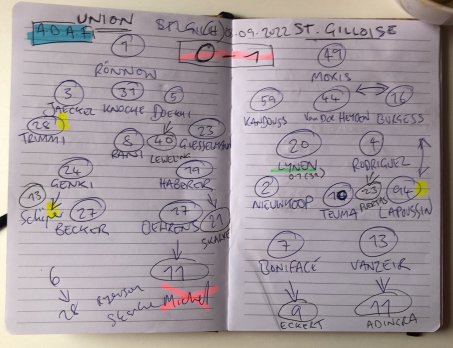 ADAF
UNION
08-09-2022
ST. GILLOISE
0-1
1
RÖNNOW
49
MORIS
3
31
5
JAECKEL
KNOCHE
DOEKHI
59
44
16
KANDOUSS
VAN DER HEYDEN
BURGESS
28
TRIMMI
8
40
23
RANI
LEWELING
GIESSELMANN
20
4
LYNEN
0-1 (39)
RODRIGUEZ
24
19
GENKI
HABERER
2
10
23
94
NIEUWKOOP
TEUMA
PUERTAS
LAPOUSSIN
13
27
27
21
BECKER
BEHRENS
7
13
BONIFACE
VANZEIR
11
Michel
6
28
9
11
ECKERT
ADINGRA